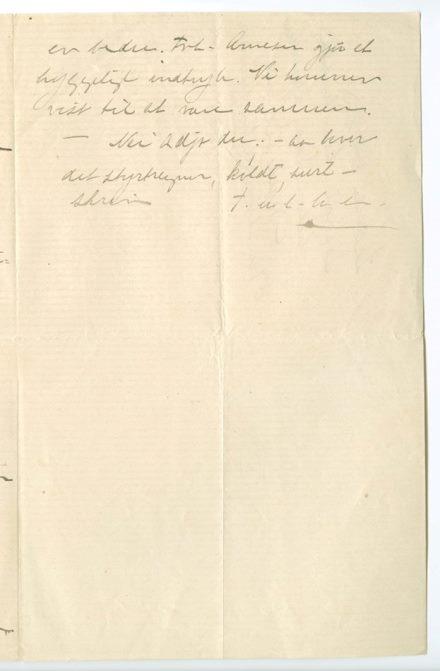 er bedre. Frk. Arnesen gjør et
hyggeligt indtryk. Vi kommer
vist til at være sammen.
— Nei adjø du: – aa hvor
det styrtregner, koldt, surt –
Skriv